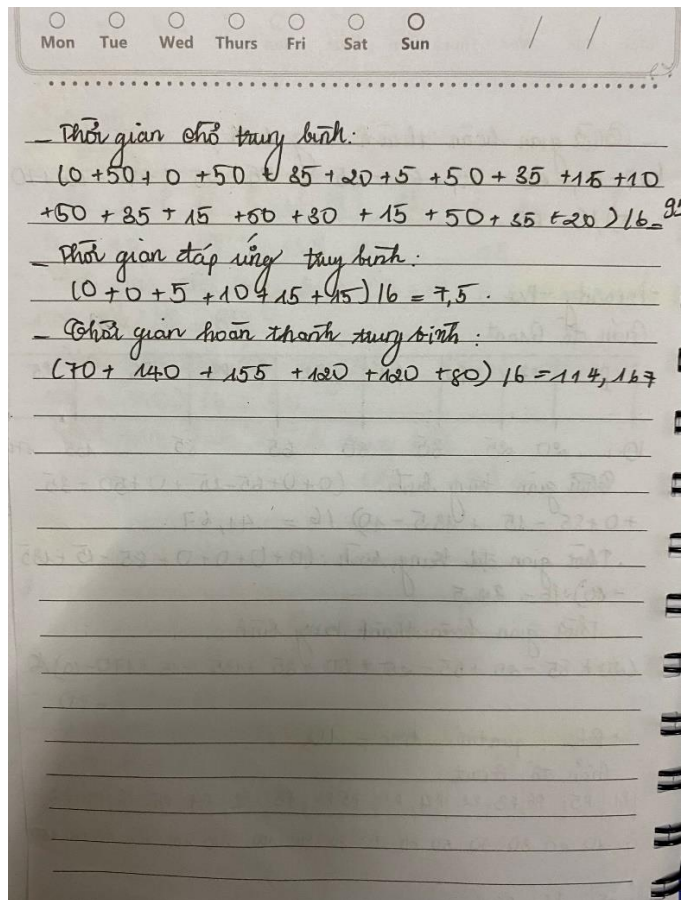 Mon Tue Wed Thurs Fri Sat Sun / /
- Thời gian chờ trung bình:
(0 + 50 + 0 + 50 + 35 + 20 + 5 + 50 + 35 + 15 + 10
+50 + 35 + 15 + 50 + 30 + 15 + 50 + 35 + 20) / 6 =
- Thời gian đáp ứng trung bình:
(0 + 0 + 5 + 10 + 15 + 15) / 6 = 7,5.
- Thời gian hoàn thành trung bình:
(70 + 140 + 155 + 120 + 120 + 80) / 6 = 114,167